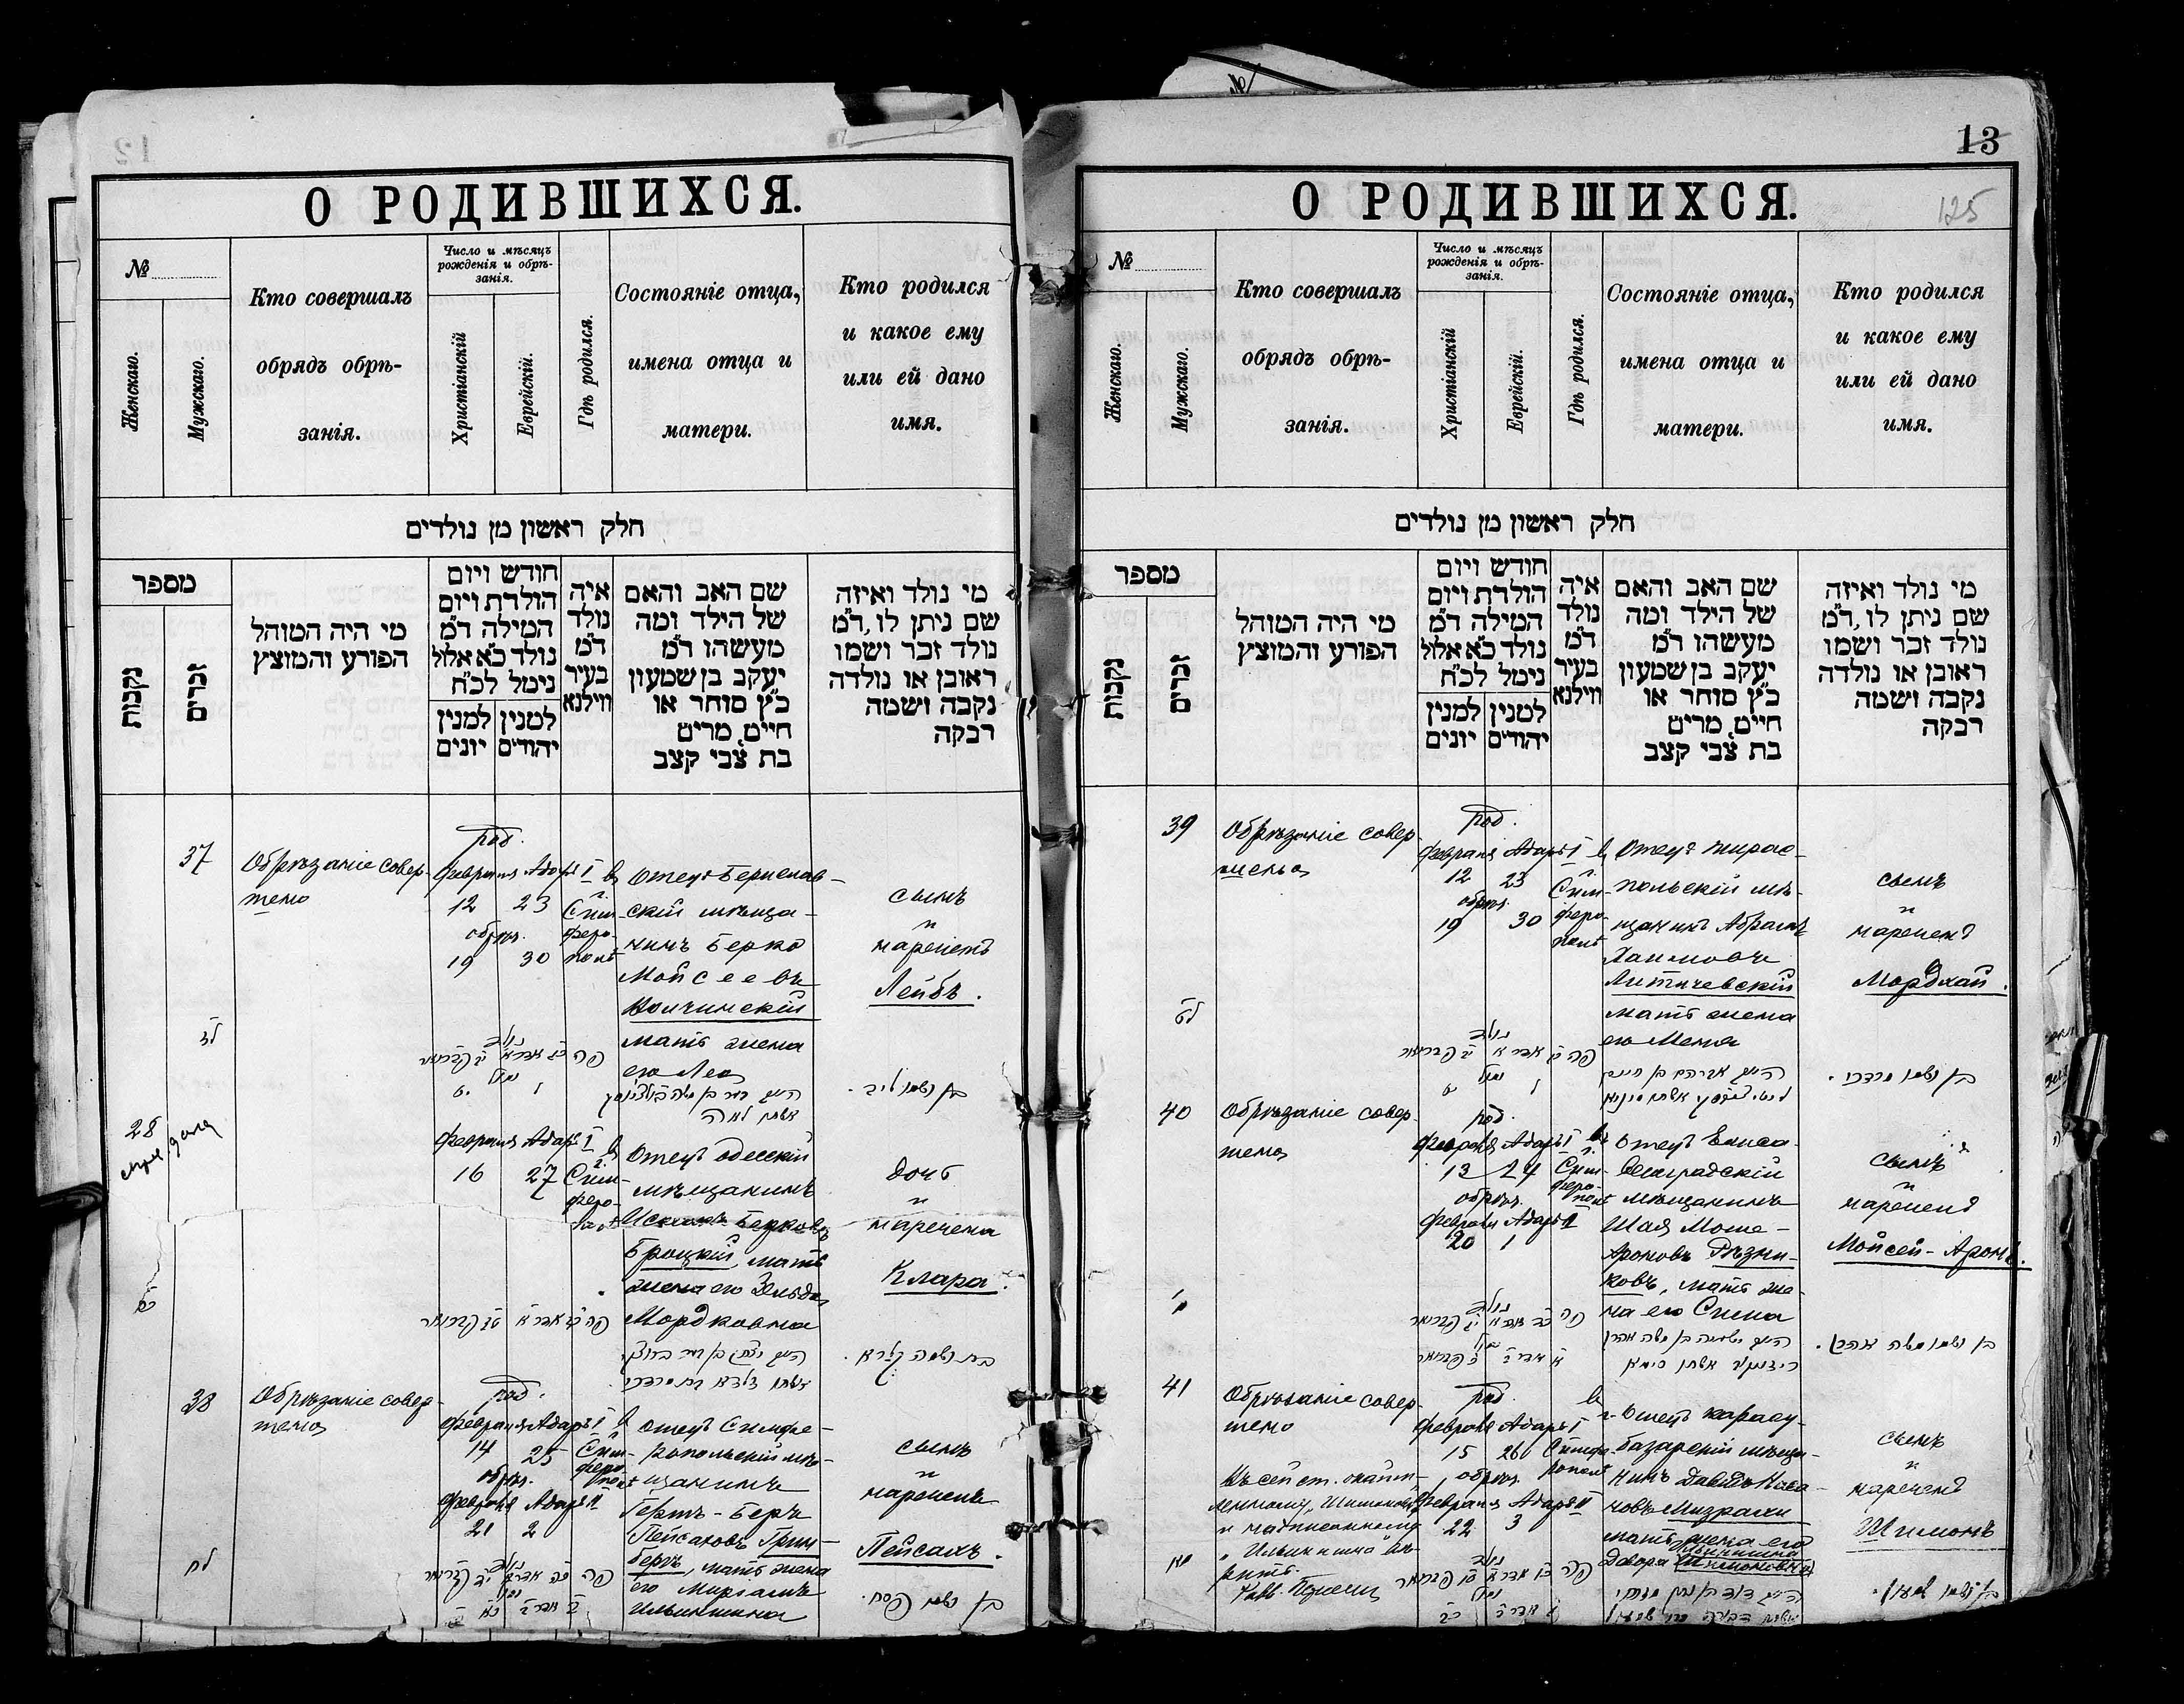 О РОДИВШИХСЯ.
№
Женскаго.
Мужскаго.
Кто совершалъ
обрядъ обрѣ-
занія.
Число и мѣсяцъ
рожденія и обрѣ-
занія.
Христіанскій
Еврейскій.
Гдѣ родился.
Состояніе отца,
имена отца и
матери.
Кто родился
и какое ему
или ей дано
имя.
חלק ראשון מן נולדים
מספר
נקבות
זכרים
מי היה המוהל
הפורע והמוצץ
חודש ויום
הולדת ויום
המילה ד״מ
נולד כ״א אלול
נימל לכ״ח
למנין יהודים
למנין יונים
איה
נולד
ד״מ
בעיר
ווילנא
שם האב והאם
של הילד ומה
מעשהו ד״מ
יעקב בן שמעון
כ״ץ סוחר או
חיים, מרים
בת צבי קצב
מי נולד ואיזה
שם ניתן לו, ד״מ
נולד זכר ושמו
ראובן או נולדה
נקבה ושמה
רבקה
37
Обрѣзаніе совер-
шено
род.
Февраля Адаръ I
12 23
обрѣз.
19 30
в г.
Сим-
феро-
полѣ
Отецъ Берислав-
скій мѣща-
нинъ Берко
Мойсеевъ
Волчинскій
мать жена
его Лея
сынъ
и
нареченъ
Лейбъ.
לז
נולד
פה כג אדר א יב פברואר
נמול
בן ושמו ליב.
אשתו לאה
28
Февраля Адаръ I
16 27
в г.
Сим-
феро-
Отецъ одесскій
мѣщанинъ
Берковъ
Броцкій, мать
жена его
Мордковна
дочь
и
наречена
Клара.
כח
בת ושמה קלרא.
38
Обрѣзаніе совер-
шено
род.
Февраля Адаръ I
14 25
обрѣз.
Февраля Адаръ II
21 2
в г.
Сим-
феро-
полѣ
Отецъ Симфе-
ропольскій мѣ-
щанинъ
Герш-Беръ
Пейсаховъ Грин-
бергъ, мать жена
его Миріамъ
сынъ
и
нареченъ
Пейсахъ.
לח
בן ושמו פסח.
13
125
О РОДИВШИХСЯ.
№
Женскаго.
Мужскаго.
Кто совершалъ
обрядъ обрѣ-
занія.
Число и мѣсяцъ
рожденія и обрѣ-
занія.
Христіанскій
Еврейскій.
Гдѣ родился.
Состояніе отца,
имена отца и
матери.
Кто родился
и какое ему
или ей дано
имя.
חלק ראשון מן נולדים
מספר
נקבות
זכרים
מי היה המוהל
הפורע והמוצץ
חודש ויום
הולדת ויום
המילה ד״מ
נולד כ״א אלול
נימל לכ״ח
למנין יהודים
למנין יונים
איה
נולד
ד״מ
בעיר
ווילנא
שם האב והאם
של הילד ומה
מעשהו ד״מ
יעקב בן שמעון
כ״ץ סוחר או
חיים, מרים
בת צבי קצב
מי נולד ואיזה
שם ניתן לו, ד״מ
נולד זכר ושמו
ראובן או נולדה
נקבה ושמה
רבקה
39
Обрѣзаніе совер-
шено
род.
Февраля Адаръ I
12 23
обрѣз.
19 30
в г.
Сим-
феро-
полѣ
Отецъ тирас-
польскій мѣ-
щанинъ Абрамъ
Хаимовъ
Литичевскій
мать жена
его
сынъ
и
нареченъ
Мордхай.
לט
בן ושמו מרדכי.
40
Обрѣзаніе совер-
шено
род.
Февраля Адаръ I
13 24
обрѣз.
Февраля Адаръ II
20 1
в г.
Сим-
феро-
полѣ
Отецъ Елиса-
ветградскій
мѣщанинъ
Шая Моше-
Ароновъ Рѣзни-
ковъ, мать же-
на его Сима
сынъ
и
нареченъ
Мойсей-Аронъ.
מ
בן ושמו משה אהרן.
41
Обрѣзаніе совер-
шено
род.
Февраля Адаръ I
15 26
обрѣз.
Февраля Адаръ II
22 3
в г.
Симфе-
рополѣ
Отецъ карасу-
базарскій мѣща-
нинъ Давидъ
Мизрахи
мать жена его
Двора
сынъ
и
нареченъ
Шимонъ
מא
בן ושמו שמעון.